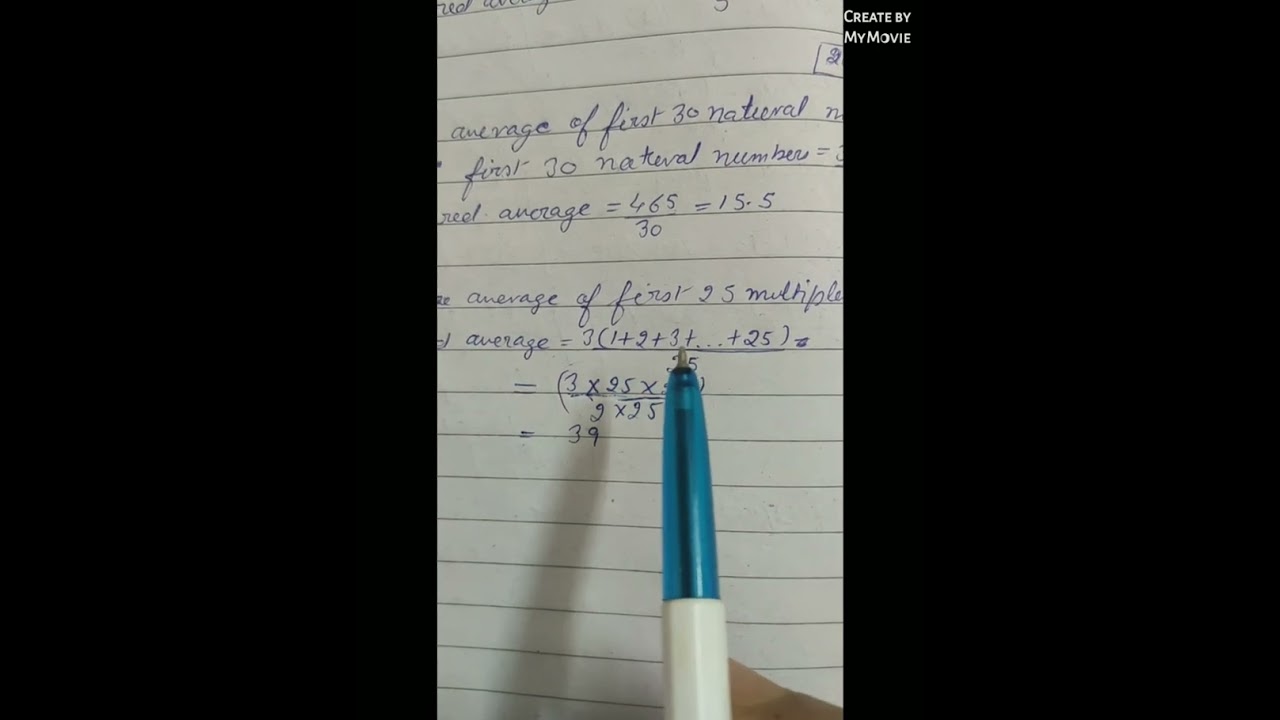 CREATE BY
MYMOVIE
average of first 30 natural
first 30 natural number =
average = 465/30 = 15.5
average of first 25 multiple
average = 3(1+2+3+...+25) =
25
= (3 × 25 ×
2 × 25
= 39